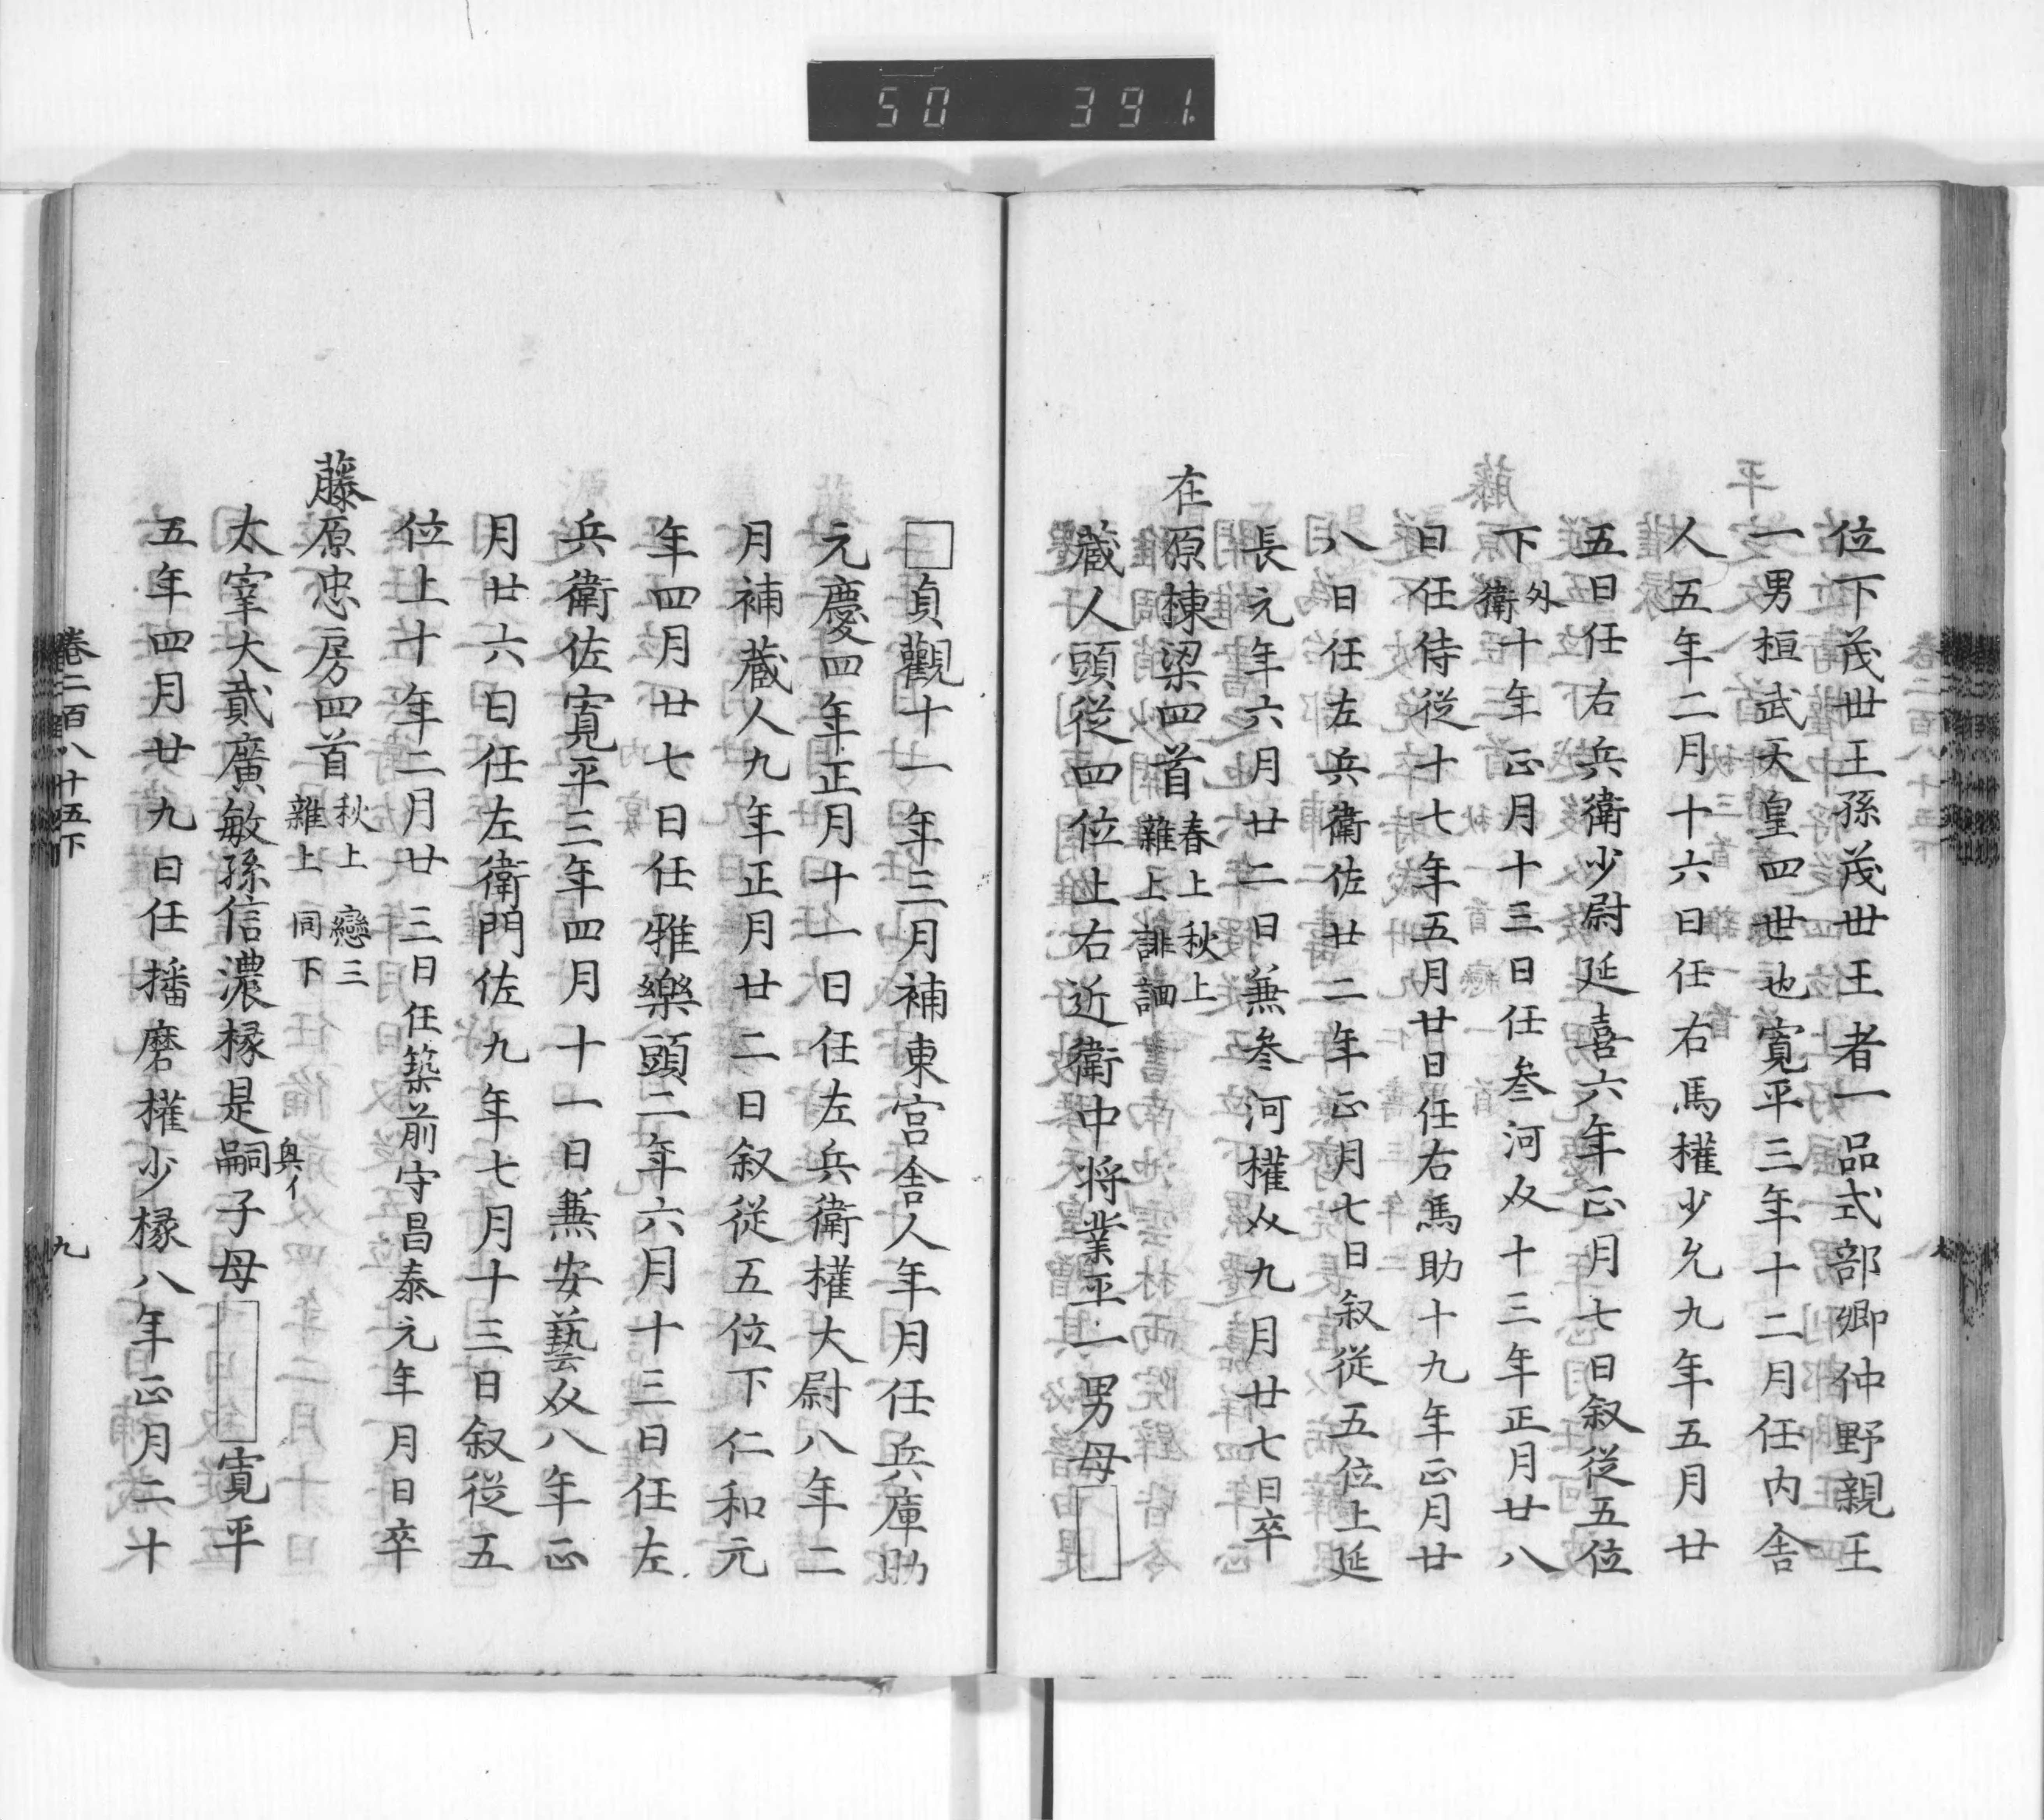 50 391.
位下茂世王孫茂世王者一品式部卿仲野親王
一男桓武天皇四世也寛平三年十二月任内舎
人五年二月十六日任右馬權少允九年五月廿
五日任右兵衛少尉延喜六年正月七日叙従五位
下外衛十年正月十三日任参河㕝十三年正月廿八
日任侍従十七年五月廿日任右馬助十九年正月廿
八日任左兵衛佐廿二年正月七日叙従五位上延
長元年六月廿二日兼参河權㕝九月廿七日卒
在原棟梁四首春上秋上雜上誹諧
蔵人頭従四位上右近衛中将業平一男母□
□貞觀十一年三月補東宮舎人年月任兵庫助
元慶四年正月十一日任左兵衛權大尉八年二
月補蔵人九年正月廿二日叙従五位下仁和元
年四月廿七日任雅樂頭二年六月十三日任左
兵衛佐寛平三年四月十一日兼安藝㕝八年正
月廿六日任左衛門佐九年七月十三日叙従五
位上十年二月廿三日任築前守昌泰元年月日卒
藤原忠房四首秋上戀三雜上同下
太宰大貳廣敏孫信濃椽是嗣奥イ子母□寛平
五年四月廿九日任播磨權少椽八年正月二十
卷二百八十五下
九